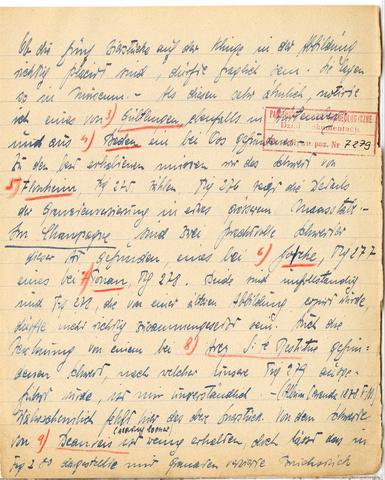 Ob die fünf Zierstücke auf der Klinge in der Abbildung
richtig placirt sind, dürfte fraglich sein. Sie liegen
so im Museum. - Als diesem sehr ähnlich, notirte
ich eines von 3) Gültlingen ebenfalls in
und aus 4) Baden ein bei Oos gefundenes.
Zu den best erhaltenen müssen wir das Schwert von
5) Flonheim Fig 275 zählen Fig 276 zeigt die Details
der Granatenverzierung in etwas grösserem Maasstabe.
In Champagne sind zwei prachtvolle Schwerter
dieser Art gefunden, eines bei 6) Fig 277
eines bei 7) Fig 278. Beide sind unvollständig
und Fig 278, die von einer alten Abbildung copirt wurde,
dürfte nicht richtig zusammengesetzt sein. Auch die
Zeichnung von einem bei 8) Arcy St. e Restitue gefun-
denen Schwert, nach welcher unsere Fig 279 ausge-
führt wurde, ist mir unverständlich. - (Album Caranda 1878
Wahrscheinlich fehlt hier das obere Querstück. Von dem Schwerte
von 9) Beauvais ist wenig erhalten, doch lässt das in
Fig 280 dargestellte mit Granaten verzierte Bruchstück
Dział Dokumentacji
poz. Nr 7279